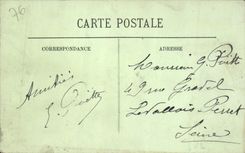 76
CARTE POSTALE
CORRESPONDANCE
ADRESSE
Amitiés
G.
Monsieur G.
49 rue Gravel
Levallois Perret
Seine